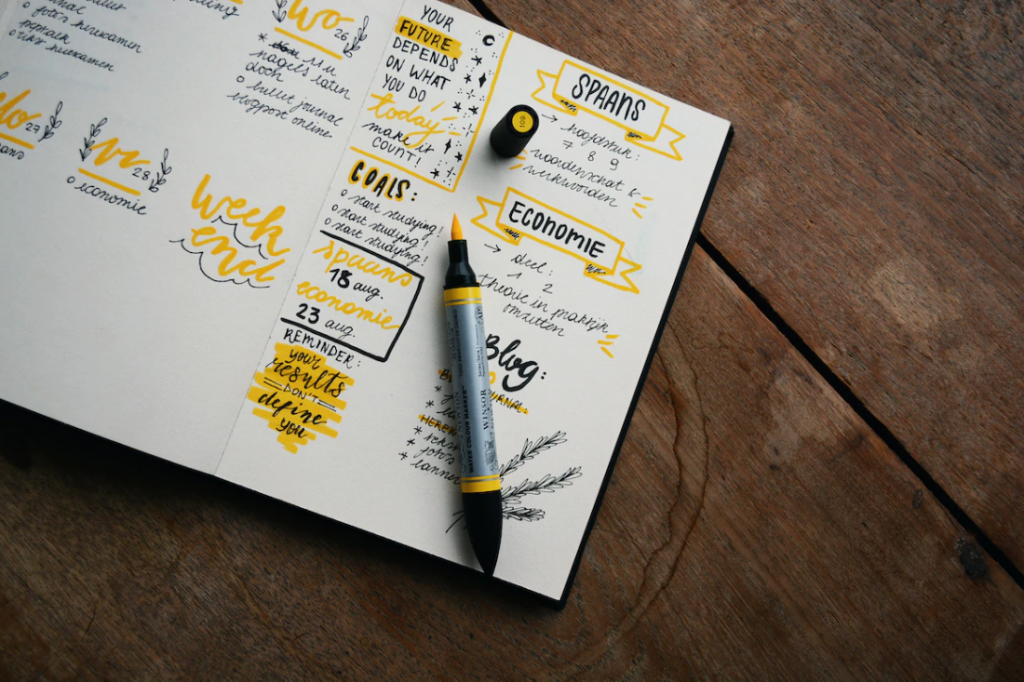 journal
o foto's herexamen
o herexamen
Wo 26
11u
nagels laten
doen
o bullet journal
blogpost online
do 27
vr 28
o economie
Week
end
YOUR
FUTURE
DEPENDS
ON WHAT
YOU DO
today
make it
COUNT!
GOALS:
o start studying!
o start studying!
o start studying!
spaans
18 aug.
economie
23 aug.
REMINDER:
your
results
DON'T
define
you
SPAANS
→ hoofdstuk:
7 8 9
woordenschat &
werkwoorden
ECONOMIE
→ deel:
1 2
theorie in praktijk
omzetten
Blog:
JOURNAL:
banner
WATER COLOUR MARKER
WINSOR